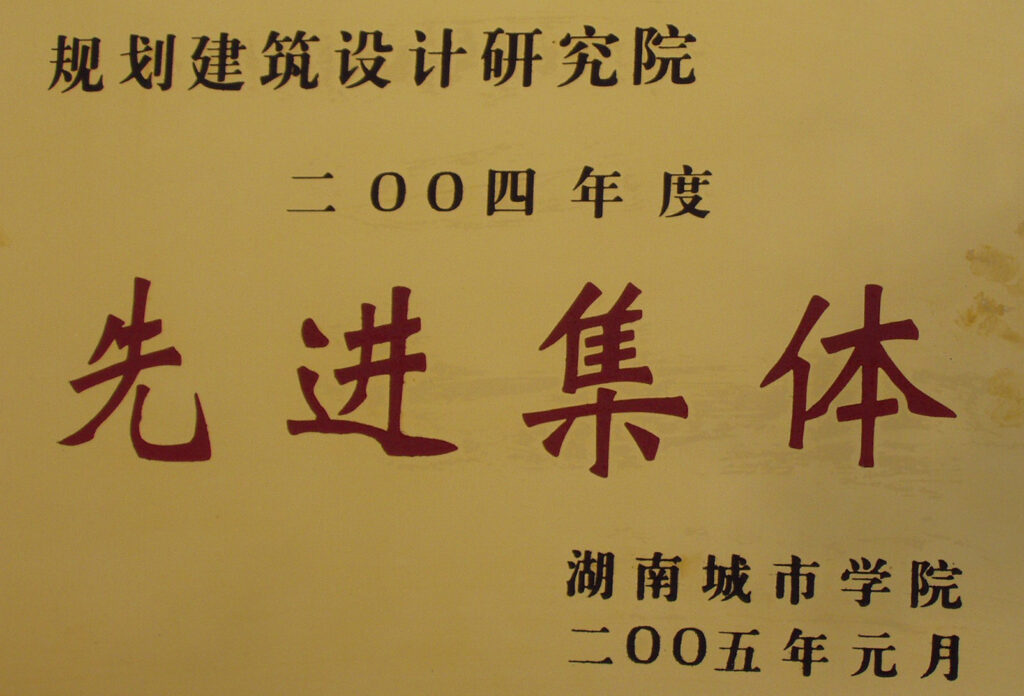 规划建筑设计研究院
二OO四年度
先进集体
湖南城市学院
二OO五年元月